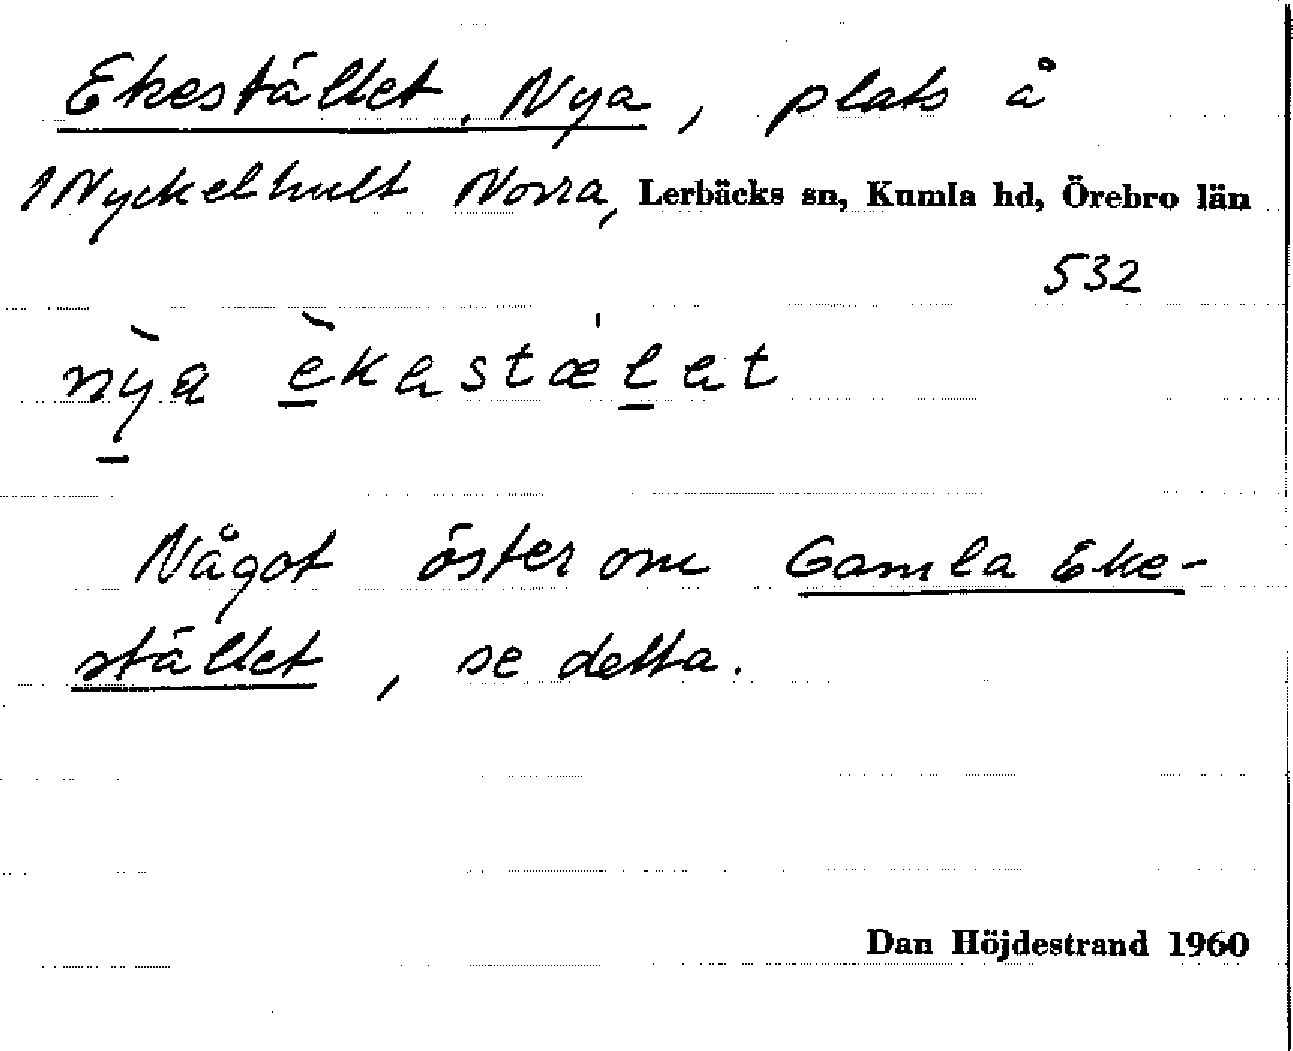 Ekestället, Nya, plats å
1 Nyckelhult Norra, Lerbäcks sn, Kumla hd, Örebro län
532
nỳa èkastæ'lat
Något öster om Gamla Eke-
stället, se detta.
Dan Höjdestrand 1960